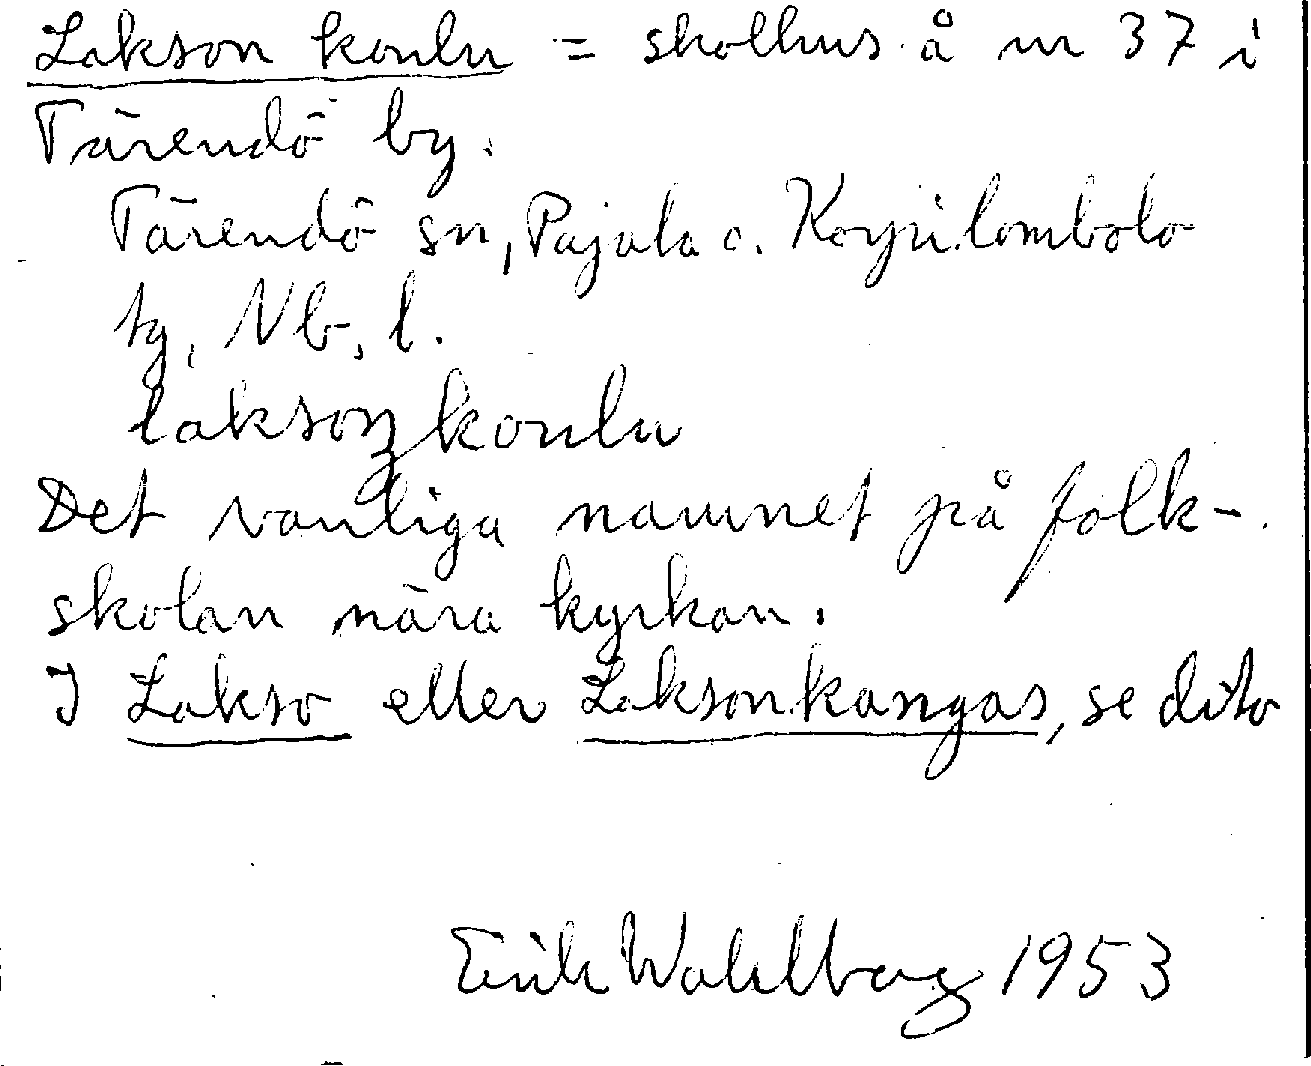 Lakson koulu = skolhus å nr 37 i
Tärendö by.
Tärendö sn, Pajala o. Korpilombolo
tg, Nb, l.
laksoŋkoulu
Det vanliga namnet på folk-
skolan nära kyrkan.
I Lakso eller Laksonkangas, se dito
Erik Wahlberg 1953